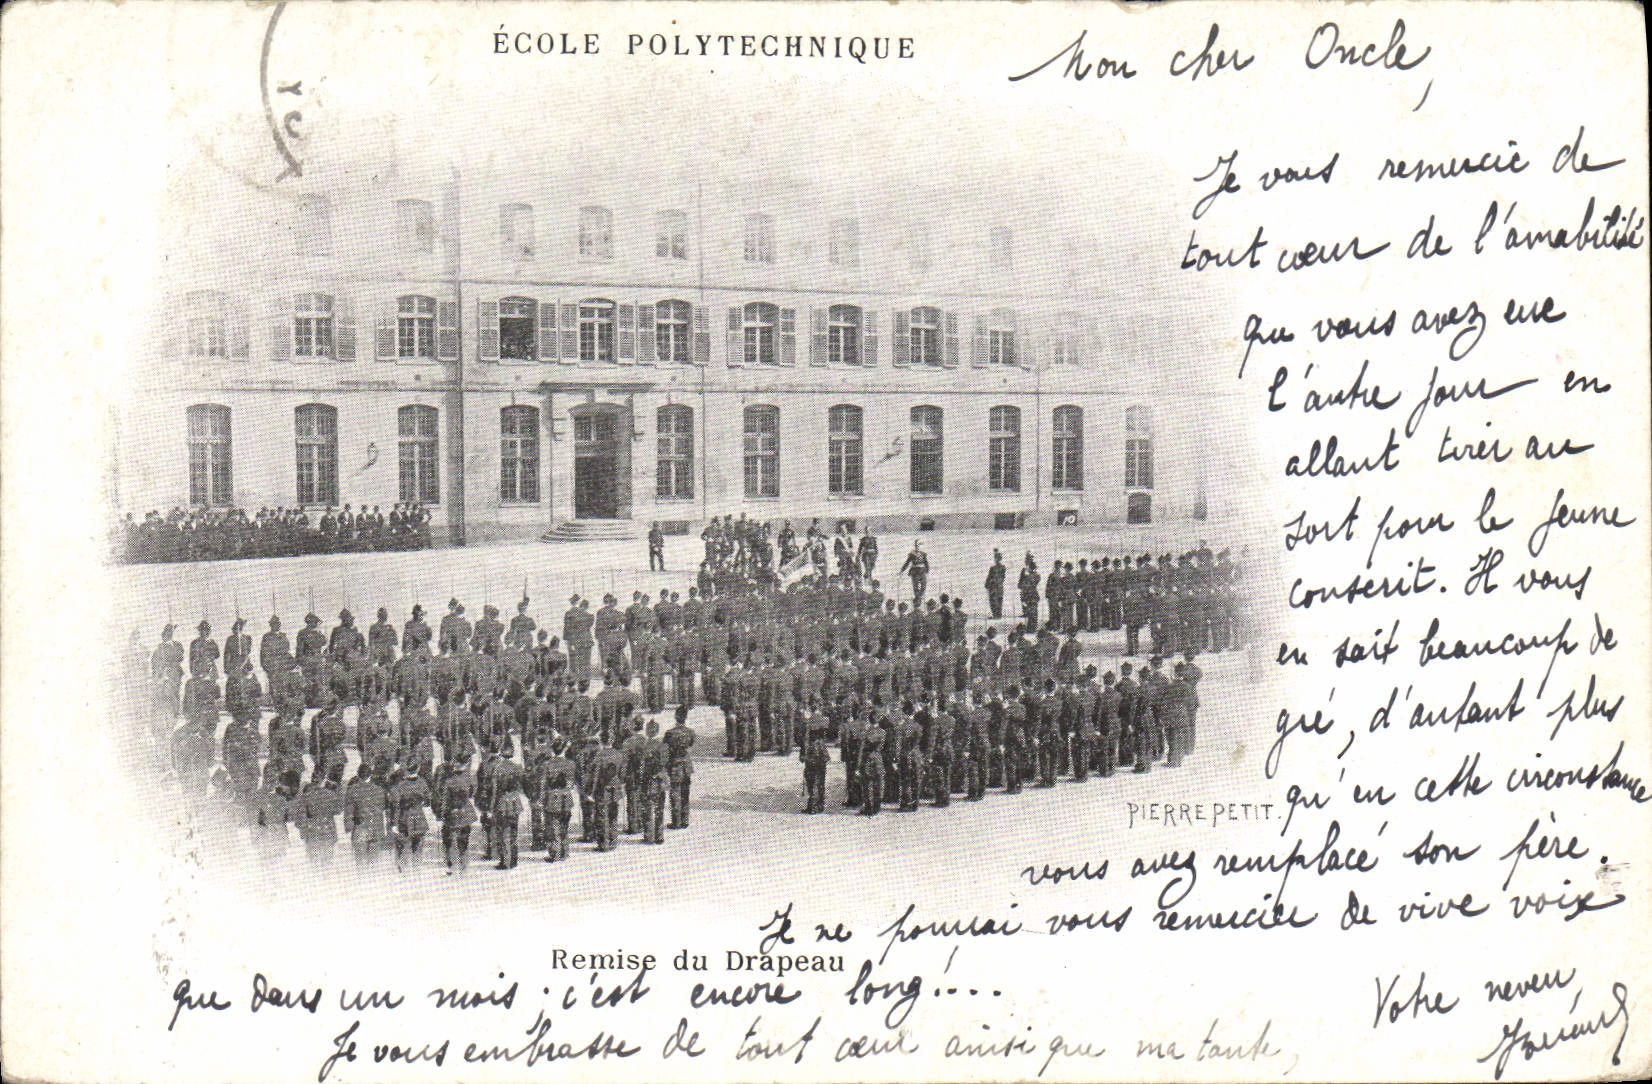 ÉCOLE POLYTECHNIQUE
Mon cher Oncle,
Je vous remercie de
tout cœur de l'amabilité
que vous avez eue
l'autre jour en
allant tirer au
sort pour le jeune
conscrit. Il vous
en sait beaucoup de
gré, d'autant plus
qu'en cette circonstance
vous avez remplacé son père.
Je ne pourrai vous remercier de vive voix
que dans un mois ; c'est encore long !....
Je vous embrasse de tout cœur ainsi que ma tante,
Votre neveu,
PIERRE PETIT.
Remise du Drapeau